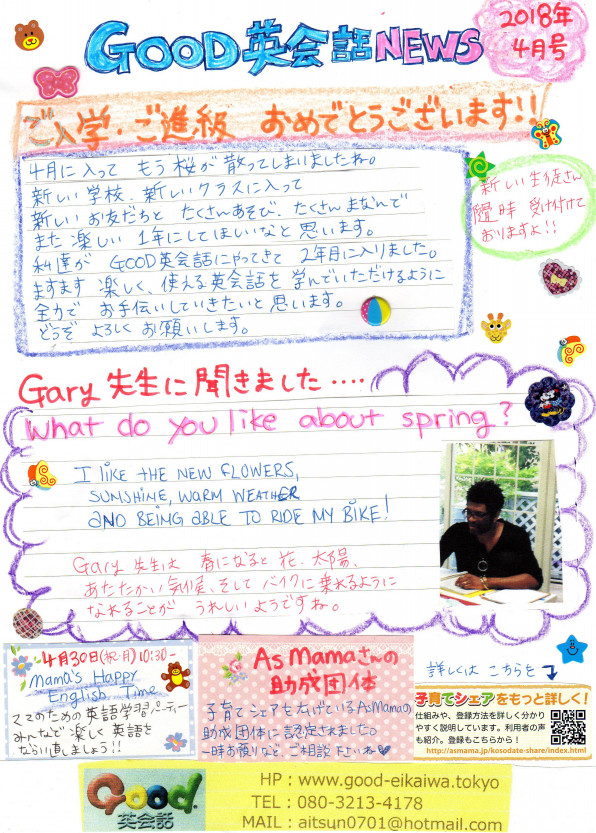 GOOD英会話NEWS
2018年
4月号
ご入学・ご進級 おめでとうございます!!
4月に入って もう桜が散ってしまいましたね。
新しい学校、新しいクラスに入って
新しいお友だちと たくさんあそび、たくさんまなんで
また楽しい 1年にしてほしいなと思います。
私達が GOOD英会話にやってきて 2年目に入りました。
ますます 楽しく、使える英会話を 学んでいただけるように
全力で お手伝いしていきたいと思います。
どうぞ よろしく お願いします。
新しい生徒さん
随時 受け付けて
おりますよ!!
Gary 先生に聞きました‥‥
What do you like about spring?
I LIKE THE NEW FLOWERS,
SUNSHINE, WARM WEATHER
AND BEING ABLE TO RIDE MY BIKE!
Gary 先生は 春になると 花、太陽、
あたたかい気候、そして バイクに乗れるように
なれることが うれしいようですね。
4月30日(祝・月) 10:30-
Mama's Happy
English Time
ママのための英語学習パーティー
みんなで楽しく 英語を
ならい直しましょう!!
As Mamaさんの
助成団体
子育てシェアを広げているAsMamaの
助成団体に認定されました。
一時お預りなど、ご相談下さいね
詳しくは こちらを
子育てシェアをもっと詳しく!
仕組みや、登録方法を詳しく分かり
やすく説明しています。利用者の声
も紹介。登録もこちらから!
http://asmama.jp/kosodate-share/index.html
Good
英会話
HP : www.good-eikaiwa.tokyo
TEL : 080-3213-4178
MAIL : aitsun0701@hotmail.com